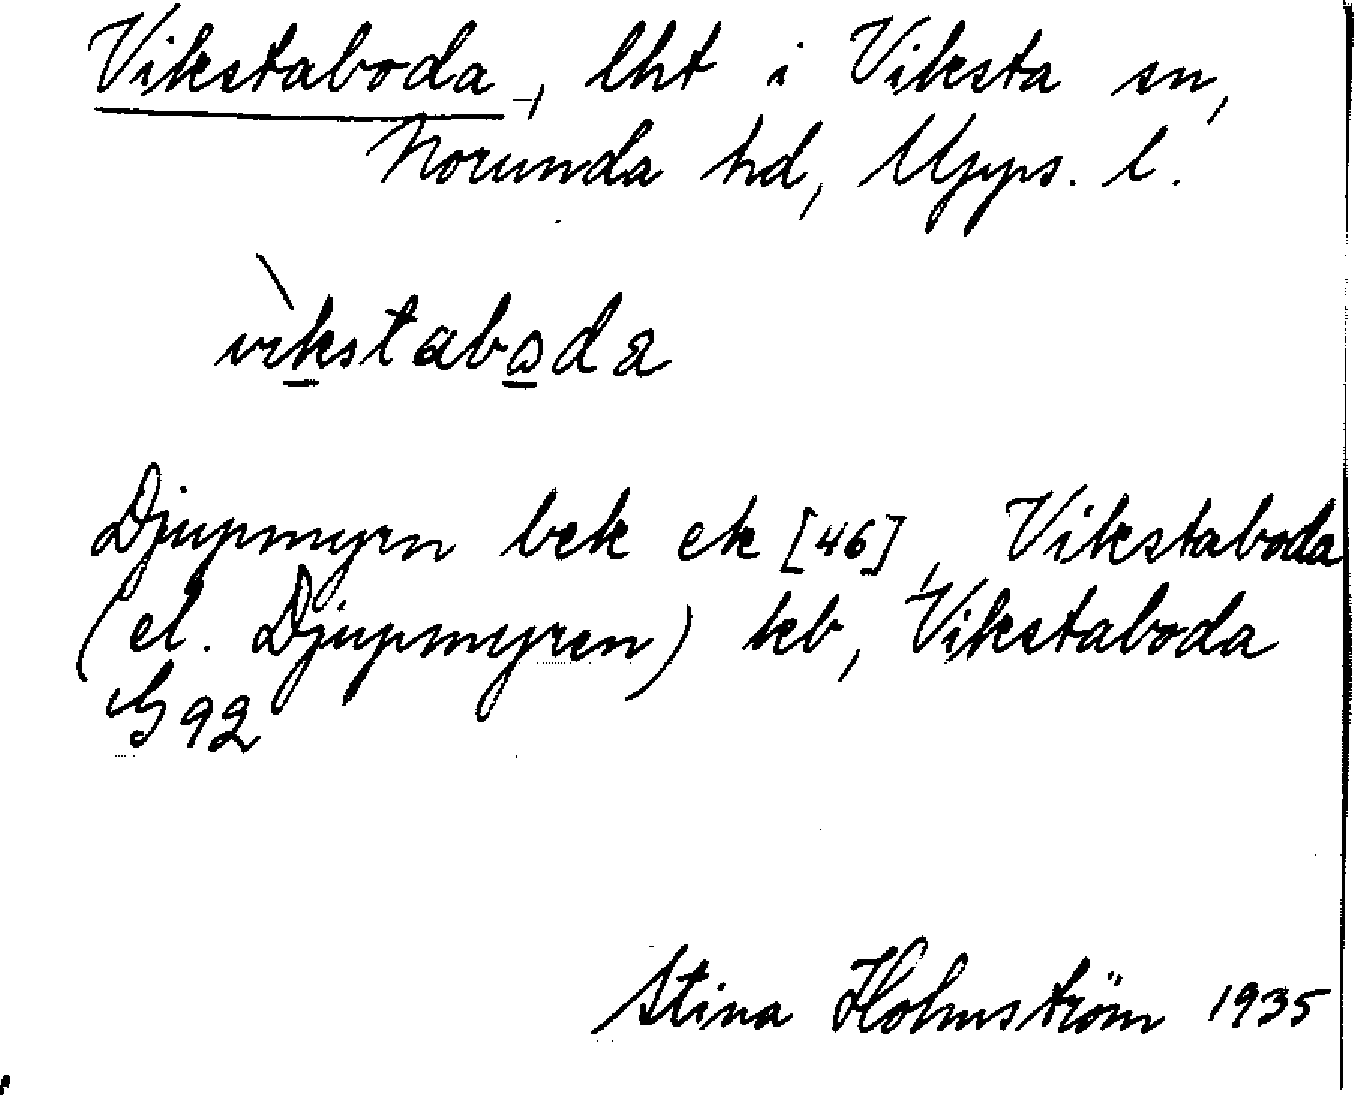 Vikstaboda, lht i Viksta sn,
Norunda hd, Upps. l.
vikstaboda
Djupmyrn bek ek [46], Vikstaboda
(el. Djupmyren) kb, Vikstaboda
G 92
Stina Holmström 1935